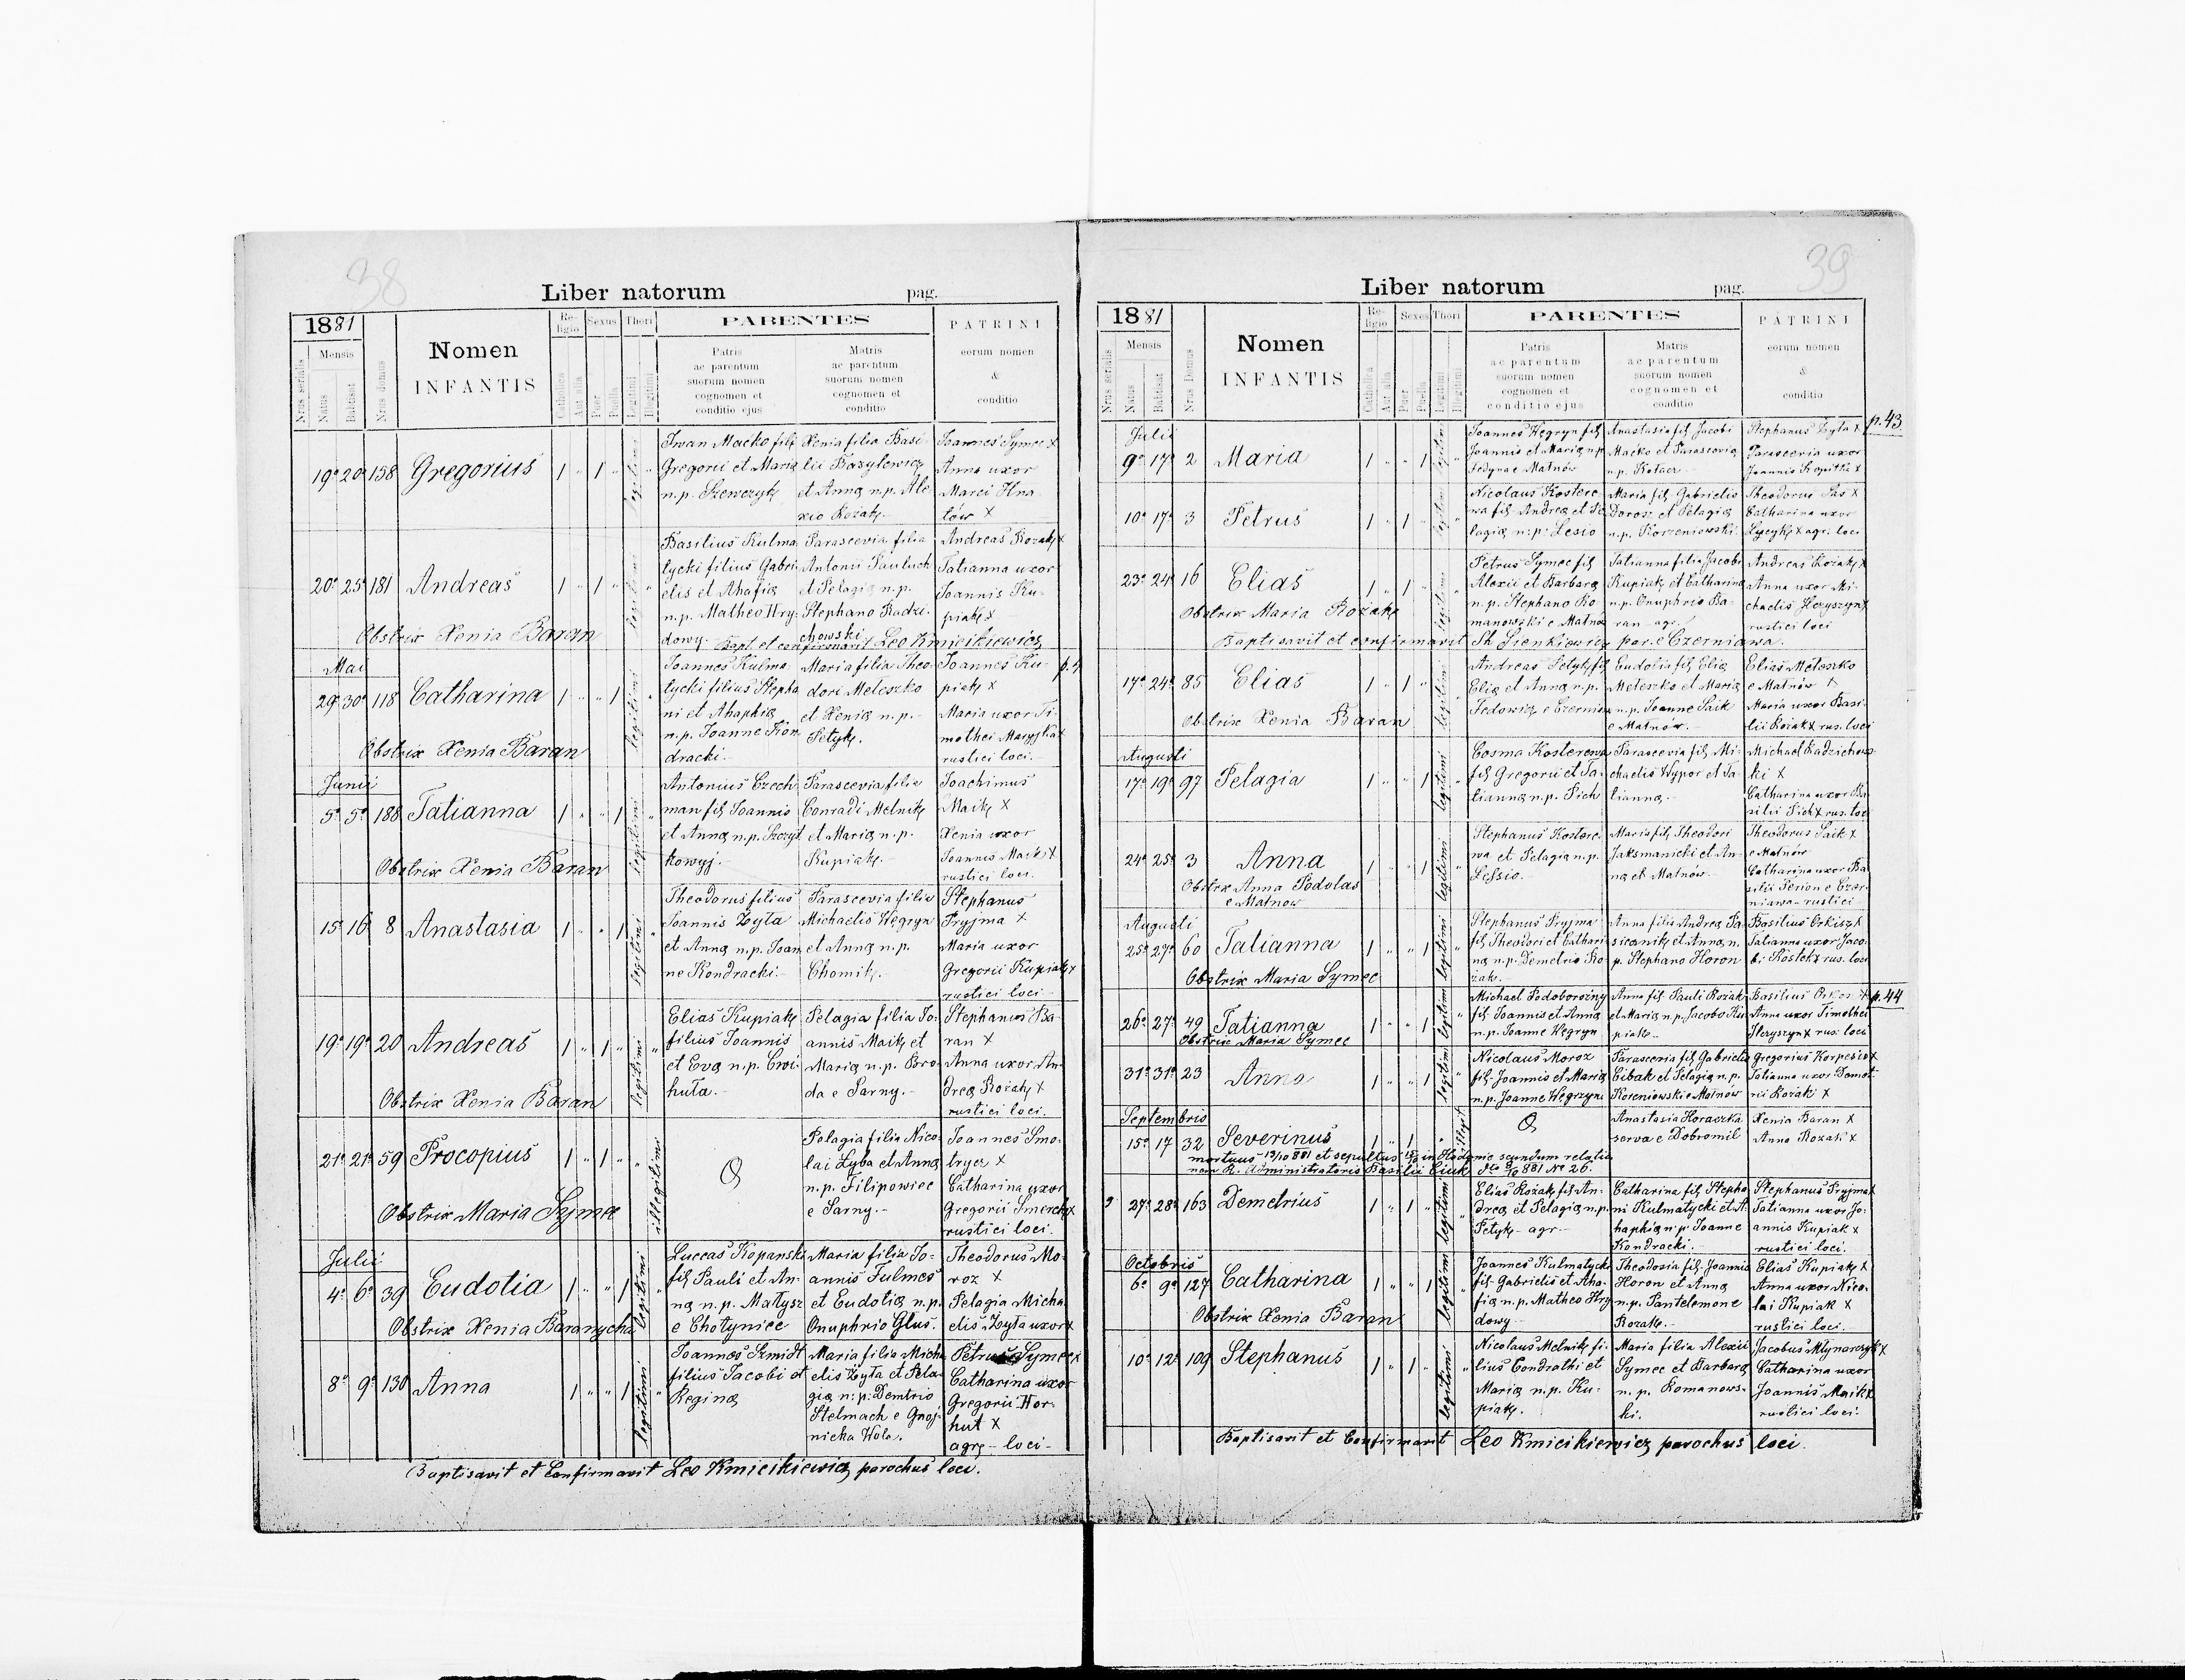 38
Liber natorum pag.
1881
Nrus serialis
Mensis
Natus
Babtisat
Nrus domus
Nomen
INFANTIS
Religio
Catholica
Aut alia
Sexus
Puer
Puella
Thori
Legitimi
Illegitimi
PARENTES
Patris
ac parentum
suorum nomen
cognomen et
conditio ejus
Matris
ac parentum
suorum nomen
cognomen et
conditio
PATRINI
eorum nomen
&
conditio
19a 20a 158 Gregorius 1 " 1 " legitimi "
Iwan Macko fili
Gregorii et Maria
n.p. Szewczyk
Xenia filia Basi
lii Bazylewicz
et Anna n.p. Ale
xio Kozak
Joannes Symec x
Anna uxor
Marci Hna
tów x
20a 25a 181 Andreas 1 " 1 " legitimi "
Obstrix Xenia Baran
Basilius Kulma
tycki filius Gabri
elis et Ahafia
n.p. Matheo Hry
dowy.
Parascevia filia
Antonii Pauluch
et Pelagia n.p.
Stephano Radzi
chowski
Andreas Kozak x
Tatianna uxor
Joannis Ku-
piak x
Bapt. et confirmavit Leo Kmicikiewicz
Mai
29a 30a 118 Catharina 1 " " 1 legitimi "
Obstrix Xenia Baran
Joannes Kulma
tycki filius Stepha
ni et Ahaphia
n.p. Joanne Kon
dracki.
Maria filia Theo
dori Meteszko
et Xenia n.p.
Petyk.
Joannes Ku-
piak x
Maria uxor Ti
mothei
rustici loci.
Junii
5a 5a 188 Tatianna 1 " " 1 legitimi "
Obstrix Xenia Baran
Antonius Czech
man fil Joannis
et Anna n.p. Szczyt
kowyj.
Parascevia filia
Conradi Melnik
et Maria n.p.
Kupiak.
Joachimus
Maik x
Xenia uxor
Joannis Maik x
rustici loci.
15a 16a 8 Anastasia 1 " " 1 legitimi "
Theodorus filius
Joannis Zyta
et Anna n.p. Joan
ne Kondracki.
Parascevia filia
Michaelis Węgryn
et Anna n.p.
Chomik.
Stephanus
Pryjma x
Maria uxor
Gregorii Kupiak x
rustici loci
19a 19a 20 Andreas 1 " 1 " legitimi "
Obstrix Xenia Baran
Elias Kupiak
filius Joannis
et Eva n.p. Cwi
huta.
Pelagia filia Jo
annis Maik et
Maria n.p. Bro
da e Sarny.
Stephanus Ba
ran x
Anna uxor An
drea Kozak x
rustici loci.
21a 21a 59 Procopius 1 " 1 " " illegitimi
Obstrix Maria Symec
Pelagia filia Nico
lai Zyba et Anna
n.p. Filipowiec
e Sarny.
Joannes Smo
tryez x
Catharina uxor
Gregorii Smereka x
rustici loci.
Julii
4a 6a 39 Eudotia 1 " " 1 legitimi "
Obstrix Xenia Baranycha
Luccas Kopanski
fil Pauli et An-
na n.p. Matysz
e Chotyniec
Maria filia Jo-
annis Fulmes
et Eudotia n.p.
Onuphrio Glus.
Theodorus Mo
roz x
Pelagia Micha
elis Zyta uxor x
8a 9a 130 Anna 1 " " 1 legitimi "
Joannes Szmidt
filius Jacobi et
Regina
Maria filia Micha
elis Zyta et Pela
gia n.p. Demtrio
Stelmach e Gnoj
nicka Wola.
Petrus Symec x
Catharina uxor
Gregorii Hor-
hut x
agr. loci
Baptisavit et Confirmavit Leo Kmicikiewicz parochus loci.
39
Liber natorum pag.
1881
Nrus serialis
Mensis
Natus
Batisat
Nrus Domus
Nomen
INFANTIS
Religio
Catholica
Aut alia
Sexus
Puer
Puella
Thori
Legitimi
Illegitimi
PARENTES
Patris
ac parentum
suorum nomen
cognomen et
conditio ejus
Matris
ac parentum
suorum nomen
cognomen et
conditio
PATRINI
eorum nomen
&
conditio
p. 43
Julii
9a 17a 2 Maria 1 " " 1 legitimi
Joannes Węgryn fil
Joannis et Maria n.p.
Fedyna e Matnów
Anastasia fil Jacobi
Macko et Parascevia
n.p. Kotacz
Stephanus Zyta x
Parascevia uxor
Joannis Kopitka x
10a 17a 3 Petrus 1 " 1 " legitimi
Nicolaus Kostere
wa fil Andrea et Pe
lagia n.p. Lesio
Maria fil Gabrielis
Dorosz et Pelagia
n.p. Korzeniowski
Theodorus Pas x
Catharina uxor
Lycyk x agr. loci
23a 24a 16 Elias 1 " 1 " legitimi
Obstrix Maria Kozak
Petrus Symec fil
Alexii et Barbara
n.p. Stephano Ro
manowski e Matnów
Tatianna filia Jacobi
Kupiak et Catharina
n.p. Onuphrio Ba-
ran agr.
Andreas Kozak x
Anna uxor Mi-
chaelis Heryszyn x
rustici loci
Baptisavit et confirmavit St. Sienkiewicz par. e Czerniawa.
17a 24a 85 Elias 1 " 1 " legitimi
Obstrix Xenia Baran
Andreas Petyk fil
Elia et Anna n.p.
Fedowicz e Czerniawa
Eudotia fil Elia
Meteszko et Maria
n.p. Joanne Paik
e Matnów.
Elias Meteszko
e Matnów x
Maria uxor Basi
lii Kozak x rus. loci
Augusti
17a 19a 97 Pelagia 1 " " 1 legitimi
Cosma Kosterewa
fil Gregorii et Ta-
tianna n.p. Pich
Parascevia fil Mi-
chaelis Wypor et Ta-
tianna
Michael Radzichows
ki x
Catharina uxor Ba
silii Pich x rus. loci
24a 25a 3 Anna 1 " " 1 legitimi
Obstrix Anna Podolas
e Matnow
Stephanus Kostere
wa et Pelagia n.p.
Lessio.
Maria fil Theodori
Jaksmanicki et An-
na et Matnów.
Theodorus Paik x
e Matnów
Catharina uxor Ba
silii Perion e Czer-
niawa rustici
Augusti
25a 27a 60 Tatianna 1 " " 1 legitimi
Obstrix Maria Symec
Stephanus Pryjma
fil Theodori et Cathari
na n.p. Demetrio Ko
zak.
Anna filia Andrea Pa
sicznik et Anna n.
p. Stephano Horon
Basilius Orkisz x
Tatianna uxor Jaco
bi Kostek x rus. loci
p. 44
26a 27a 49 Tatianna 1 " " 1 legitimi
Obstrix Maria Symec
Michael Podborożny
fil Joannis et Anna
n.p. Joanne Węgryn
Anna fil Pauli Kozak
et Maria n.p. Jacobo Ku
piak
Basilius
Anna uxor Timothei
Heryszyn x rus. loci
31a 31a 23 Anna 1 " " 1 legitimi
Nicolaus Moroz
fil Joannis et Maria
n.p. Joanne Węgrzyn
Parascevia fil Gabrielis
Cibak et Pelagia n.p.
Koreniowski e Matnów
Gregorius Korpesio x
Tatianna uxor Demet
rii Kozak x
Septembris
15a 17 32 Severinus 1 " 1 " " illegit
Anastasia Horaszka
serva e Dobromil
Xenia Baran x
Anna Kozak x
mortuus 13/10 881 et sepultus 15/10 in Hodynie secundum relatio
nem R. Administratoris Basilii Ciuk dto 8/10 881 No 26.
27a 28a 163 Demetrius 1 " 1 " legitimi
Elias Kozak fil An-
drea et Pelagia n.p.
Petyk agr
Catharina fil Stepha
ni Kulmatycki et A
haphia n.p. Joanne
Kondracki.
Stephanus Pryjma x
Tatianna uxor Jo-
annis Kupiak x
rustici loci.
Octobris
6a 9a 127 Catharina 1 " " 1 legitimi
Obstrix Xenia Baran
Joannes Kulmatycki
fil Gabrielis et Aha-
fia n.p. Matheo Hry
dowy
Theodosia fil Joannis
Horon et Anna
n.p. Pantelemone
Kozak.
Elias Kupiak x
Anna uxor Nico-
lai Kupiak x
rustici loci.
10a 12a 109 Stephanus 1 " 1 " legitimi
Nicolaus Melnik fi-
lius Condrathi et
Maria n.p. Ku-
piak.
Maria filia Alexii
Symec et Barbara
n.p. Romanows-
ki.
Jacobus Młynarczyk x
Catharina uxor
Joannis Maik x
rustici loci.
Baptisavit et Confirmavit Leo Kmicikiewicz parochus loci.